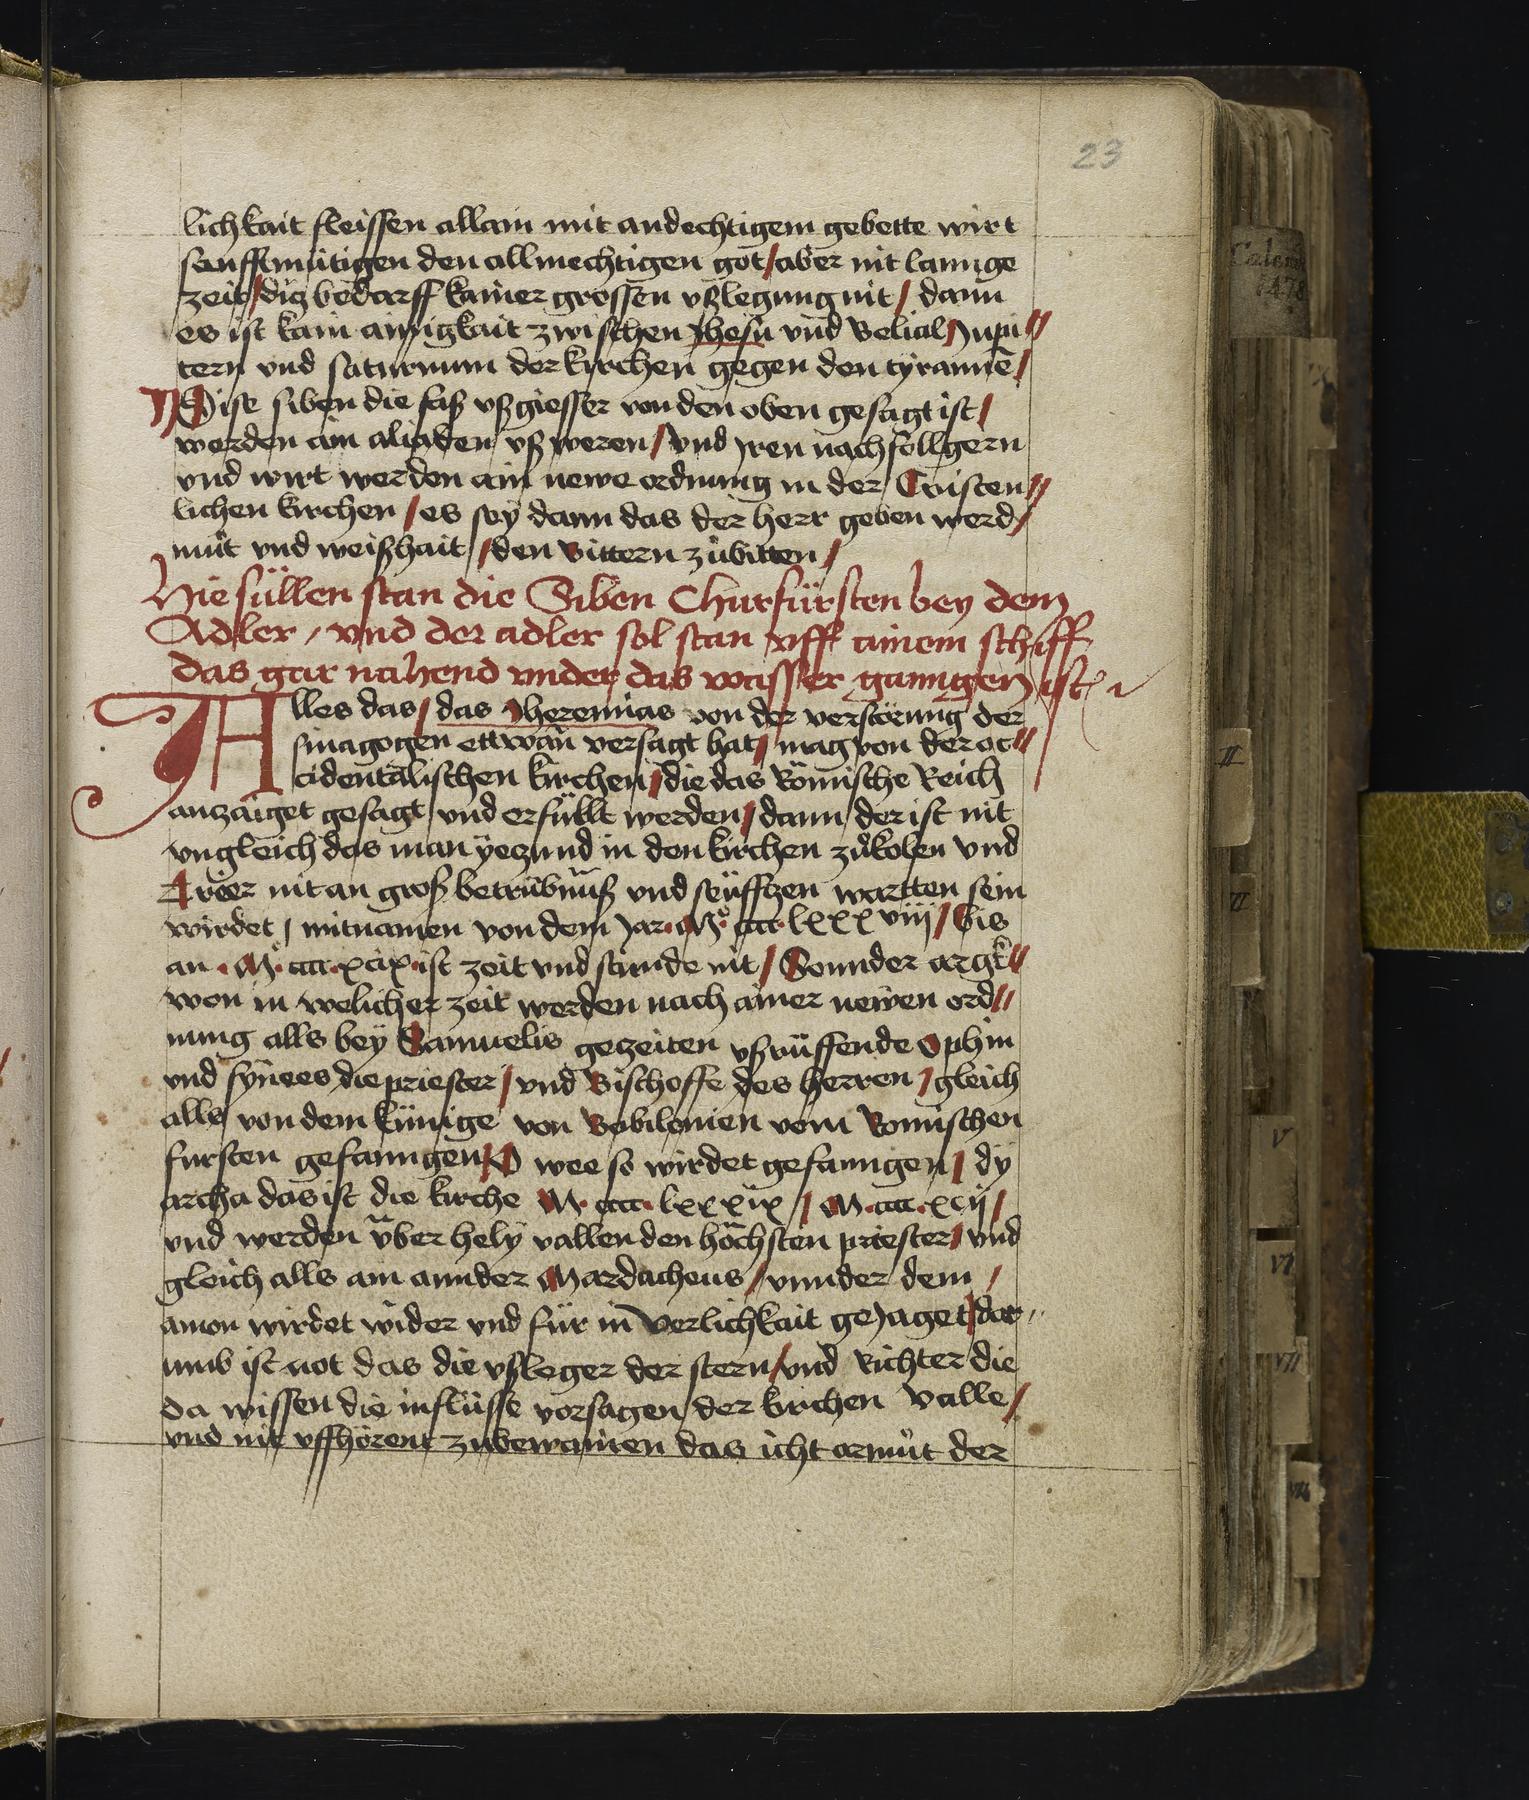 23
lichkait fleissen allain mit andechtigem gebette wirt
sanfftmütigen den allmechtigen got / aber nit lannge
zeit / diß bedarff kainer grossen vßlegung nit / dann
es ist kain ainigkait zwischen Jhesu vnd Belial Jupi//
tern vnd saturnum der kirchen gegen den tyranne /
Dise siben die faß vßgiesser von den oben gesagt ist /
werden ain vß weren / vnd jren nachfollgern
vnd wirt werden ain newe ordnung in der Cristen//
lichen kirchen / es sey dann das der herr geben werd /
mut vnd weißhait / den Bittern zubitten /
Hie süllen stan die Siben Churfürsten bey dem
Adler / vnd der adler sol stan vff ainem schiff
das gar nahend vnder das wasser ganngen ist
Alles das / das Jheremias von der verstörung der
sinagogen ettwan versagt hat / mag von der oc//
cidentalischen kirchen / die das Römische Reich
anzaiget gesagt vnd erfüllt werden / dann der ist nit
vngleich das man yezund in den kirchen zu kolen vnd
Trier nit an groß betrübnuß vnd seüfftzen wartten sein
wirdet / mitnamen von dem Jar M cccc lxxxviij / bis
an M cccc xcix ist zeit vnd stunde nit / Sonnder argk//
won in welicher zeit werden nach ainer newen ord//
nung alls bey Samuelis gezeiten vßrüffende Ophin
vnd fynees die priester / vnd Bischoffe des herren / gleich
alls von dem künige von Bobilonien vom Romischen
fursten gefanngen O wee so wirdet gefanngen / dy
archa das ist die kirche M cccc lxxxix / M cccc xcij /
vnd werden über hely vallen den höchsten priester / vnd
gleich alls ain annder Mardacheus / vnnder dem /
amon wirdet wider vnd für in verlichkait gejaget / dar//
umb ist not das die vßleger der stern / vnd Richter die
da wissen die inflüsse vorsagen der kirchen valle /
vnd nit vffhörent zubewainen das icht armut der
Calend
1478
II
V
VI
VII